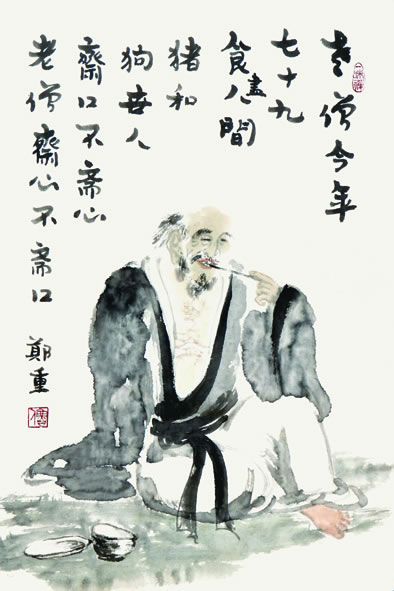 老僧今年
七十九
食盡人間
猪和
狗世人
齋口不斋心
老僧齋心不斋口
鄭重